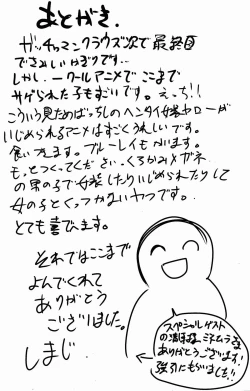 あとがき.
ガッチャマンクラウズ次で最終回
でさみしいかぎりです…
しかし、一クールアニメでここまで
サゲられた子もすごいです。えっち!!
こういう見ためばっちしのヘンタイ女装ヤローが
いじめられるアニメはすごくうれしいです。
食いつきます。ブルーレイもかいます。
もっとつくってください。くろかみメガネ
の男の子で女装したりいじめられたりして
女の子とくっつかないヤツです。
とても喜びます。
それではここまで
よんでくれて
ありがとう
ございました。
しまじ
スペシャルゲスト
の
ありがとうございます!
強引にもらいました!!